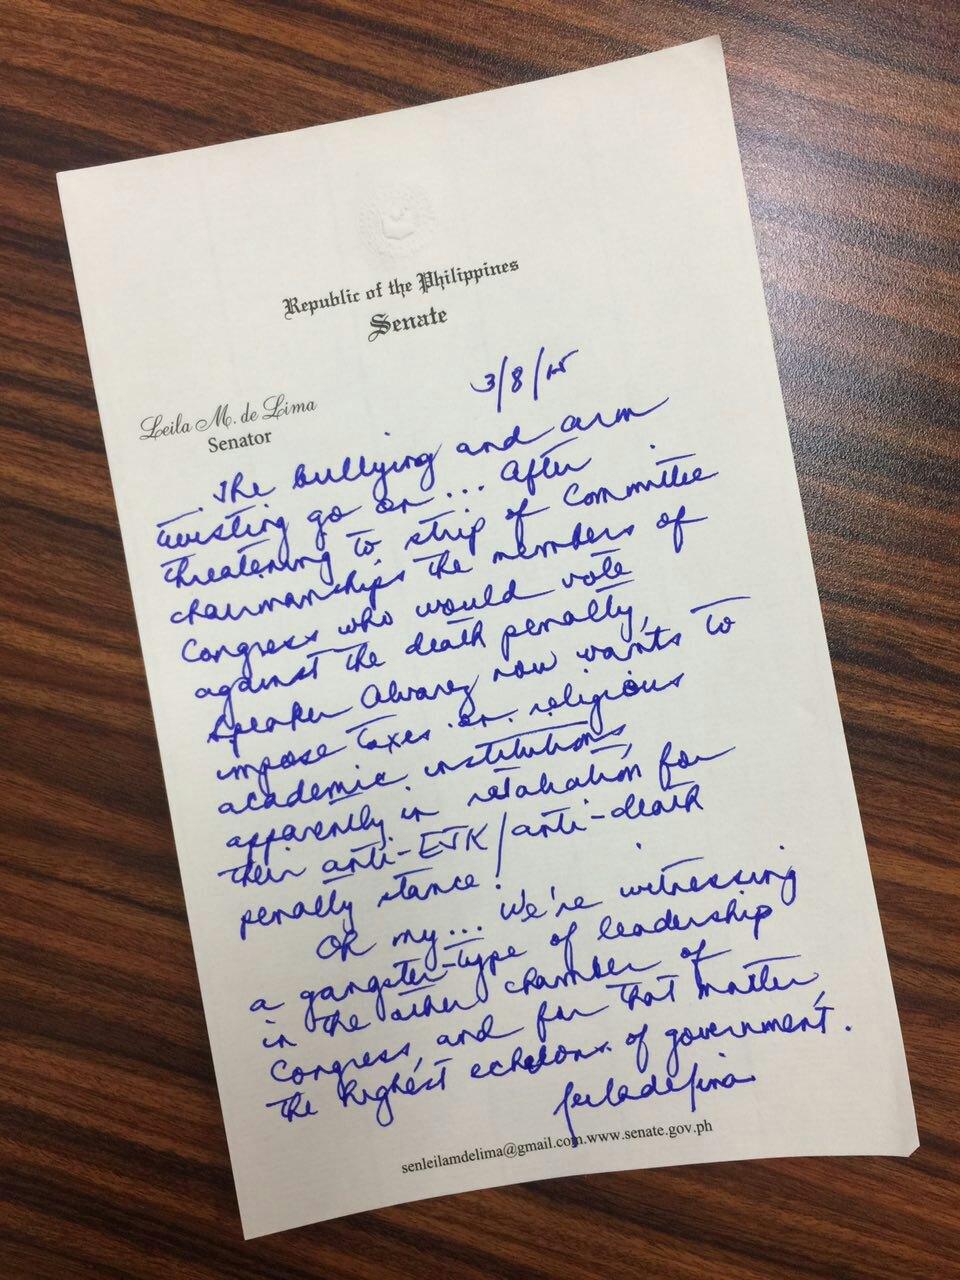 Republic of the Philippines
Senate
3/8/17
Leila M. de Lima
Senator
The bullying and arm
twisting go on... After
threatening to strip of Committee
chairmanships the members of
Congress who would vote
against the death penalty,
Speaker Alvarez now wants to
impose taxes on religious
academic institutions,
apparently in retaliation for
their anti-EJK/anti-death
penalty stance.
Oh my... We're witnessing
a gangster-type of leadership
in the other chamber of
Congress, and for that matter,
the highest echelons of government.
leiladelima
senleilamdelima@gmail.com.www.senate.gov.ph